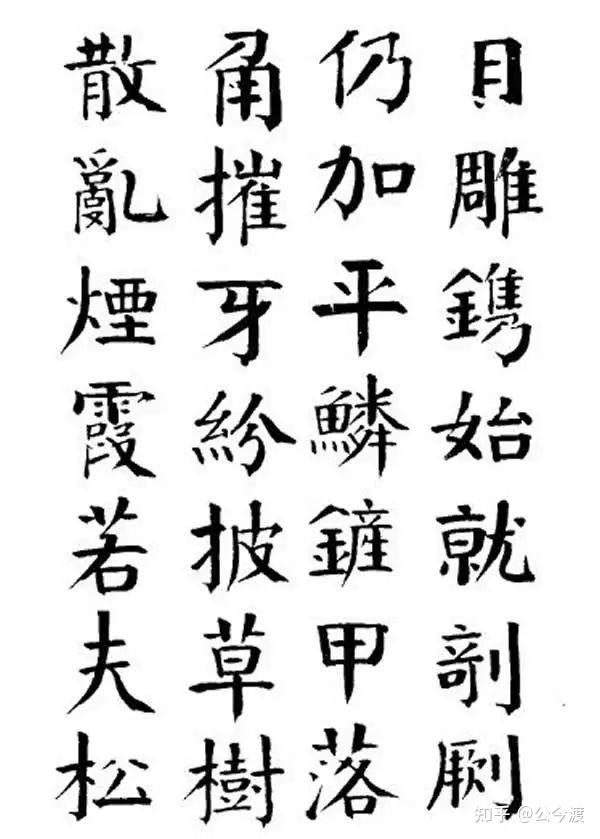 目雕鐫始就剞劂
仍加平鱗鏟甲落
角摧牙紛披草樹
散亂煙霞若夫松
知乎 @公今渡